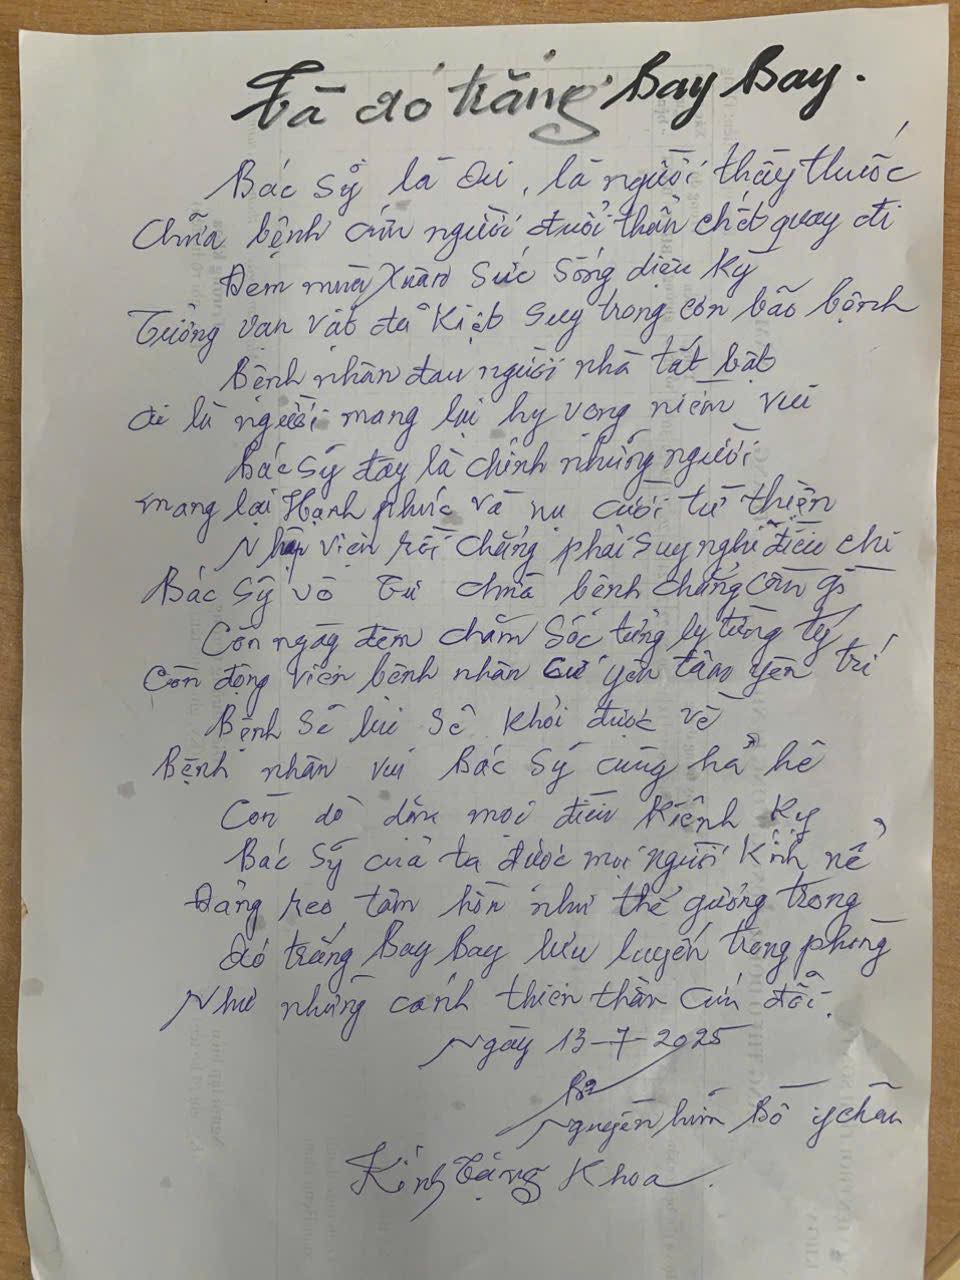 Tà áo trắng Bay Bay.
Bác Sỹ là ai, là người thầy thuốc
Chữa bệnh cứu người đuổi thần chết quay đi
Đem mùa Xuân Sức Sống diệu Kỳ
Tưởng vạn vật đã Kiệt Suy trong cơn bão bệnh
Bệnh nhân đau người nhà tất bật
ai là người mang lại hy vọng niềm vui
Bác Sỹ đây là chính những người
mang lại Hạnh phúc và nụ cười từ thiện
Nhập viện rồi chẳng phải Suy nghĩ điều chi
Bác Sỹ vô Tư chữa bệnh chẳng cần gì
Còn ngày đêm chăm Sóc từng ly từng tý
Còn động viên bệnh nhân cứ yên tâm yên trí
Bệnh Sẽ lùi Sẽ Khỏi được về
Bệnh nhân vui Bác Sỹ cũng hả hê
Còn dò dặn mọi điều Kiêng Kỵ
Bác Sỹ của ta được mọi người Kính nể
Đảng reo tâm hồn như thế gương trong
áo trắng Bay Bay lưu luyến trong phòng
Như những cánh thiên thần cứu đời.
Ngày 13-7-2025
Nguyễn Bô
Kính Tặng Khoa.